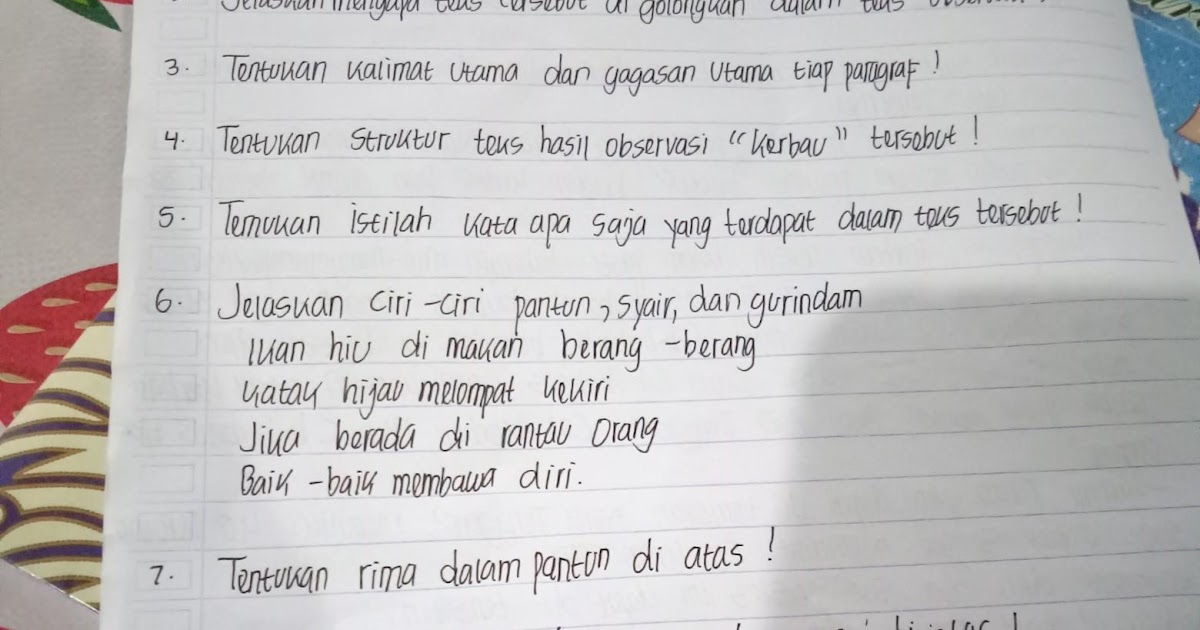 Jelaskan mengapa teks tersebut di golongkan dalam teks
3. Tentukan kalimat utama dan gagasan utama tiap paragraf !
4. Tentukan struktur teks hasil observasi "kerbau" tersebut !
5. Temukan istilah kata apa saja yang terdapat dalam teks tersebut !
6. Jelaskan ciri-ciri pantun, syair, dan gurindam
Ikan hiu di makan berang-berang
Katak hijau melompat kekiri
Jika berada di rantau orang
Baik-baik membawa diri.
7. Tentukan rima dalam pantun di atas !